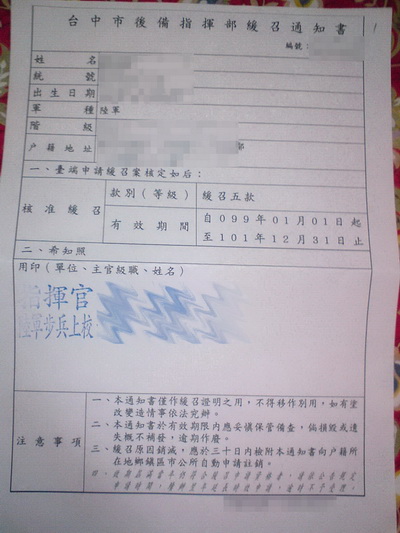 台中市後備指揮部緩召通知書
編號：
姓名
統號
出生日期
軍種 陸軍
階級
戶籍地址
一、臺端申請緩召案核定如后：
核准緩召 款別（等級） 緩召五款
有效期間 自 099 年 01 月 01 日 起
至 101 年 12 月 31 日 止
二、希知照
用印（單位、主官級職、姓名）
指揮官
陸軍步兵上校
注意事項
一、本通知書僅作緩召證明之用，不得移作別用，如有塗
改變造情事依法究辦。
二、本通知書於有效期限內應妥慎保管備查，倘損毀或遺
失概不補發，逾期作廢。
三、緩召原因銷滅，應於三十日內檢附本通知書向戶籍所
在地鄉鎮區市公所自動申請註銷。